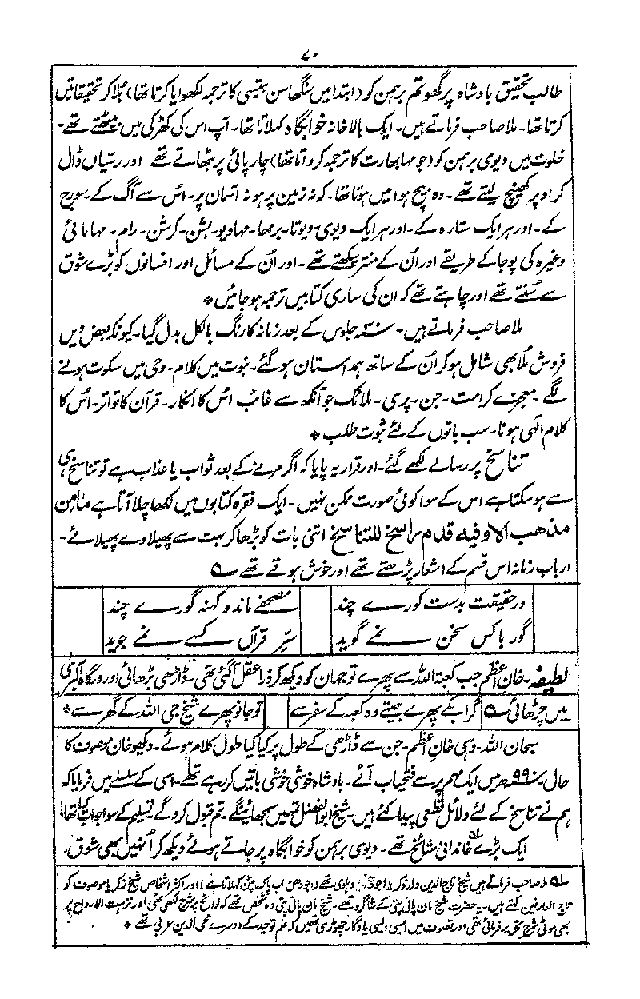 ۷۰
طالب تحقیق بادشاہ پرکھوتم برہمن کو (ابتدا میں سنگھاسن بتیسی کا ترجمہ لکھوایا کرتا تھا) بلا کر تحقیقاتیں
کرتا تھا۔ ملا صاحب فرماتے ہیں۔ ایک بالا خانہ خوابگاہ کہلاتا تھا۔ آپ اس کی کھڑکی میں بیٹھتے تھے۔
خلوت میں دیوی برہمن کو (جو مہا بھارت کا ترجمہ کرواتا تھا) چارپائی پر بٹھاتے تھے اور رسیاں ڈال
کر اوپر کھینچ لیتے تھے۔ وہ بیچ ہوا میں ہوتا تھا۔ کہ نہ زمین پر ہو نہ آسمان پر۔ اس سے آگ کے۔ سورج
کے۔ اور ہر ایک ستارہ کے۔ اور ہر ایک دیوی دیوتا۔ برمھا۔ مہادیو۔ بشن۔ کرشن۔ رام۔ مہا مائی
وغیرہ کی پوجا کے طریقے اور ان کے منتر سیکھتے تھے۔ اور ان کے مسائل اور افسانوں کو بڑے شوق
سے سنتے تھے اور چاہتے تھے کہ ان کی ساری کتابیں ترجمہ ہو جائیں *
ملا صاحب فرماتے ہیں۔ سنہ جلوس کے بعد زمانہ کا رنگ بالکل بدل گیا۔ کیونکہ بعض دیں
فروش ملا بھی شامل ہو کر ان کے ساتھ ہمداستان ہو گئے۔ نبوت میں کلام۔ وحی میں سکوت ہونے
لگے۔ معجزے کرامت۔ جن۔ پری۔ ملائک جو آنکھ سے غائب اس کا انکار۔ قرآن کا تواتر۔ اس کا
کلام الہی ہونا۔ سب باتوں کے لئے ثبوت طلب *
تناسخ پر رسالے لکھے گئے۔ اور قرار یہ پایا کہ اگر مرنے کے بعد ثواب یا عذاب ہے تو تناسخ ہی
سے ہو سکتا ہے اس کے سوا کوئی صورت ممکن نہیں۔ ایک فقرہ کتابوں میں لکھا چلا آتا ہے ما من
مذھب الا وفیہ قدم راسخ للتناسخ اتنی بات کو بڑھا کر بہت سے پھیلاوے پھیلائے۔
ارباب زمانہ اس قسم کے اشعار پڑھتے تھے اور خوش ہوتے تھے ؎
در حقیقت بدست کورے چند مصحفے ماند و کہنہ گورے چند
گور با کس سخن نمے گوید سر قرآں کسے نمے جوید
لطیفہ۔ خان اعظم جب کعبۃ اللہ سے پھرے تو جہان کو دیکھ کر ذرا عقل آ گئی تھی۔ ڈاڑھی بڑھائی اور درگاہ اکبری
میں چڑھائی ؎ گر اب کے پھرے جیتے وہ کعبہ کے سفر سے تو جانو پھرے شیخ جی اللہ کے گھر سے *
سبحان اللہ۔ وہی خان اعظم۔ جن سے ڈاڑھی کے طول پر کیا کیا طول کلام ہوئے۔ دیکھو خان موصوف کا
حال ۹۹ھ میں ایک مہم پر سے فتحیاب آئے۔ بادشاہ خوشی خوشی باتیں کر رہے تھے۔ اسی کے سلسلہ میں فرمایا کہ
ہم نے تناسخ کے لئے دلائل قطعی پیدا کئے ہیں شیخ ابو الفضل تمہیں سمجھائینگے۔ تم قبول کرو گے تسلیم کے سوا جواب کیا تھا؛
ایک بڑے خاندانی مشائخ تھے۔ دیوی برہمن کو خوابگاہ پر جاتے ہوئے دیکھ کر انہیں بھی شوق۔
ملا صاحب فرماتے ہیں شیخ تاج الدین ولد زکریا دہلوی تھے اکثر اشخاص شیخ زکریا موصوف کو
تاج العارفین کہتے ہیں۔ یہ حضرت شیخ مان پانی پتی کے شاگرد تھے۔ شیخ مان پانی پتی وہ شخص تھے کہ لوائح پر شرح لکھی تھی اور نزہت الارواح پر
بھی موٹی شرح تحریر فرمائی تھی اور تصوف میں ایسی ایسی یادگار چھوڑی تھیں کہ علم توحید کے دوسرے محی الدین عربی تھے *